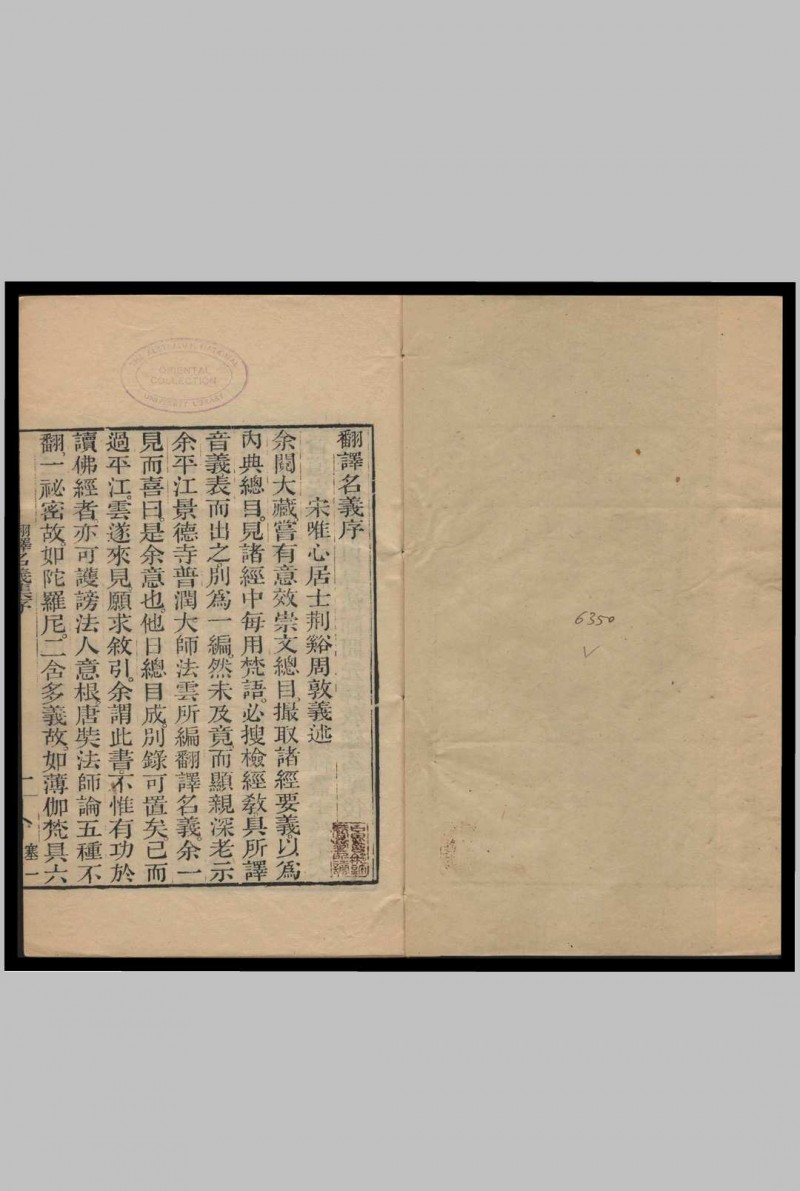 翻譯名義序
宋唯心居士荆谿周敦義述
余閱大藏嘗有意效崇文總目撮取諸經要義以爲
内典總目見諸經中每用梵語必搜檢經敎具所譯
音義表而出之別爲一編然未及竟而顯親深老示
余平江景德寺普潤大師法雲所編翻譯名義余一
見而喜曰是余意也他日總目成別錄可置矣已而
過平江雲遂來見願求敘引余謂此書不惟有功於
讀佛經者亦可護謗法人意根唐奘法師論五種不
翻一祕密故如陀羅尼二含多義故如薄伽梵具六
翻譯名義集序
一
塞一
ORIENTAL
COLLECTION
6350